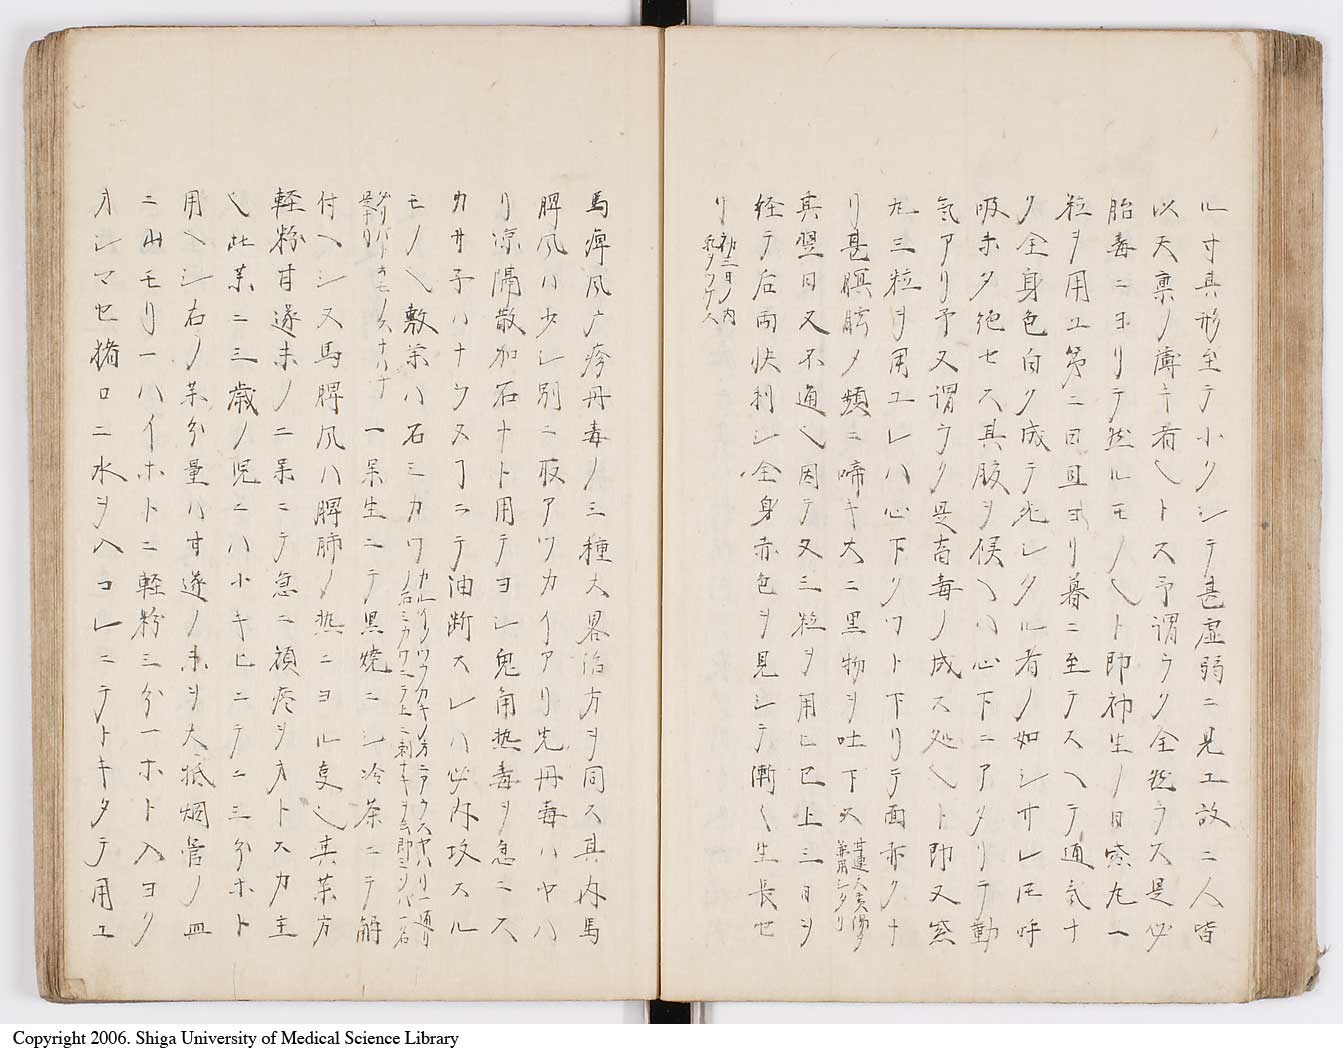 ル寸其形至テ小クシテ甚虚弱ニ見エ故ニ人皆
以天稟ノ薄キ者〆トス予謂ラク全然ラス是必
胎毒ニヨリテ然ルモノ〆ト即初生ノ日紫丸一
粒ヲ用エ第二日且ヨリ暮ニ至テスヘテ通気ナ
ク全身色白ク成テ死シタル者ノ如シサレ𪜈呼
吸未タ絶セス其腹ヲ候ヘハ心下ニアタリテ動
気アリ予又謂ラク是畜毒ノ成ス処〆ト即又紫
丸三粒ヲ用エレハ心下クワト下リテ面赤クナ
リ甚瞑眩ノ類ニ啼キ大ニ黒物ヲ吐下ス甘連大黄湯ヲ兼用シタリ
其翌日又不通〆因テ又三粒ヲ用ヒ已上三日ヲ
経テ后両快利シ全身赤色ヲ見シテ漸く生長せ
リ初三日ノ内乳ヲアタヘス
馬痺風广疹丹毒ノ三種大畧治方ヲ同ス其内馬
脾風ハ少シ別ニ取アツカイアリ先丹毒ハヤハ
リ凉隔散加石ナト用テヨシ鬼角熱毒ヲ急ニス
カサ子ハナラスヿニテ油断スレハ必内攻スル
モノ〆敷薬ハ石ミカワ
一呆生ニテ黒焼ニシ冷茶ニテ解
付ヘシ又馬脾風ハ脾肺ノ熱ニヨル変〆其薬方
軽粉甘遂末ノ二呆ニテ急ニ頓痰ヲ方トスカ主
〆此薬ニ三歳ノ児ニハ小キヒニテ二三分ホト
用ヘシ右ノ薬分量ハ甘遂ノ末ヲ大抵烟管ノ皿
ニ山モリ一ハイホトニ軽粉三分一ホト入ヨク
オシマセ猪口ニ水ヲ入コレニテトキタテ用エ
Copyright 2006. Shiga University of Medical Science Library